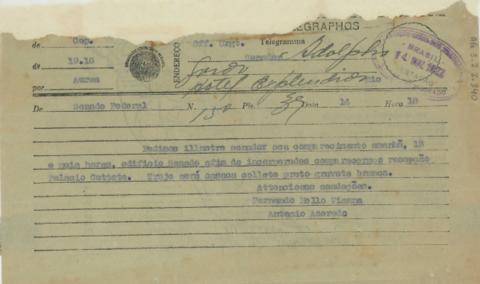 LEGRAPHOS
de Cop. Off. Urgt. Telegramma
ENDEREÇO
de 19.10 Senador Adolpho
Gordo
por Aurea Hotel Explendido Rio
BRASIL
14 MAI
De Senado Federal N. 150 Pls. 39 Data 14 Hora 18
Pedimos illustre senador seu comparecimento amanhã, 12
e meia horas, edificio Senado afim de incorporados comparecermos recepção
Palacio Cattete. Traje será casaca collete preto gravata branca.
Attenciosas saudações.
Fernando Mello Vianna
Antonio Azeredo